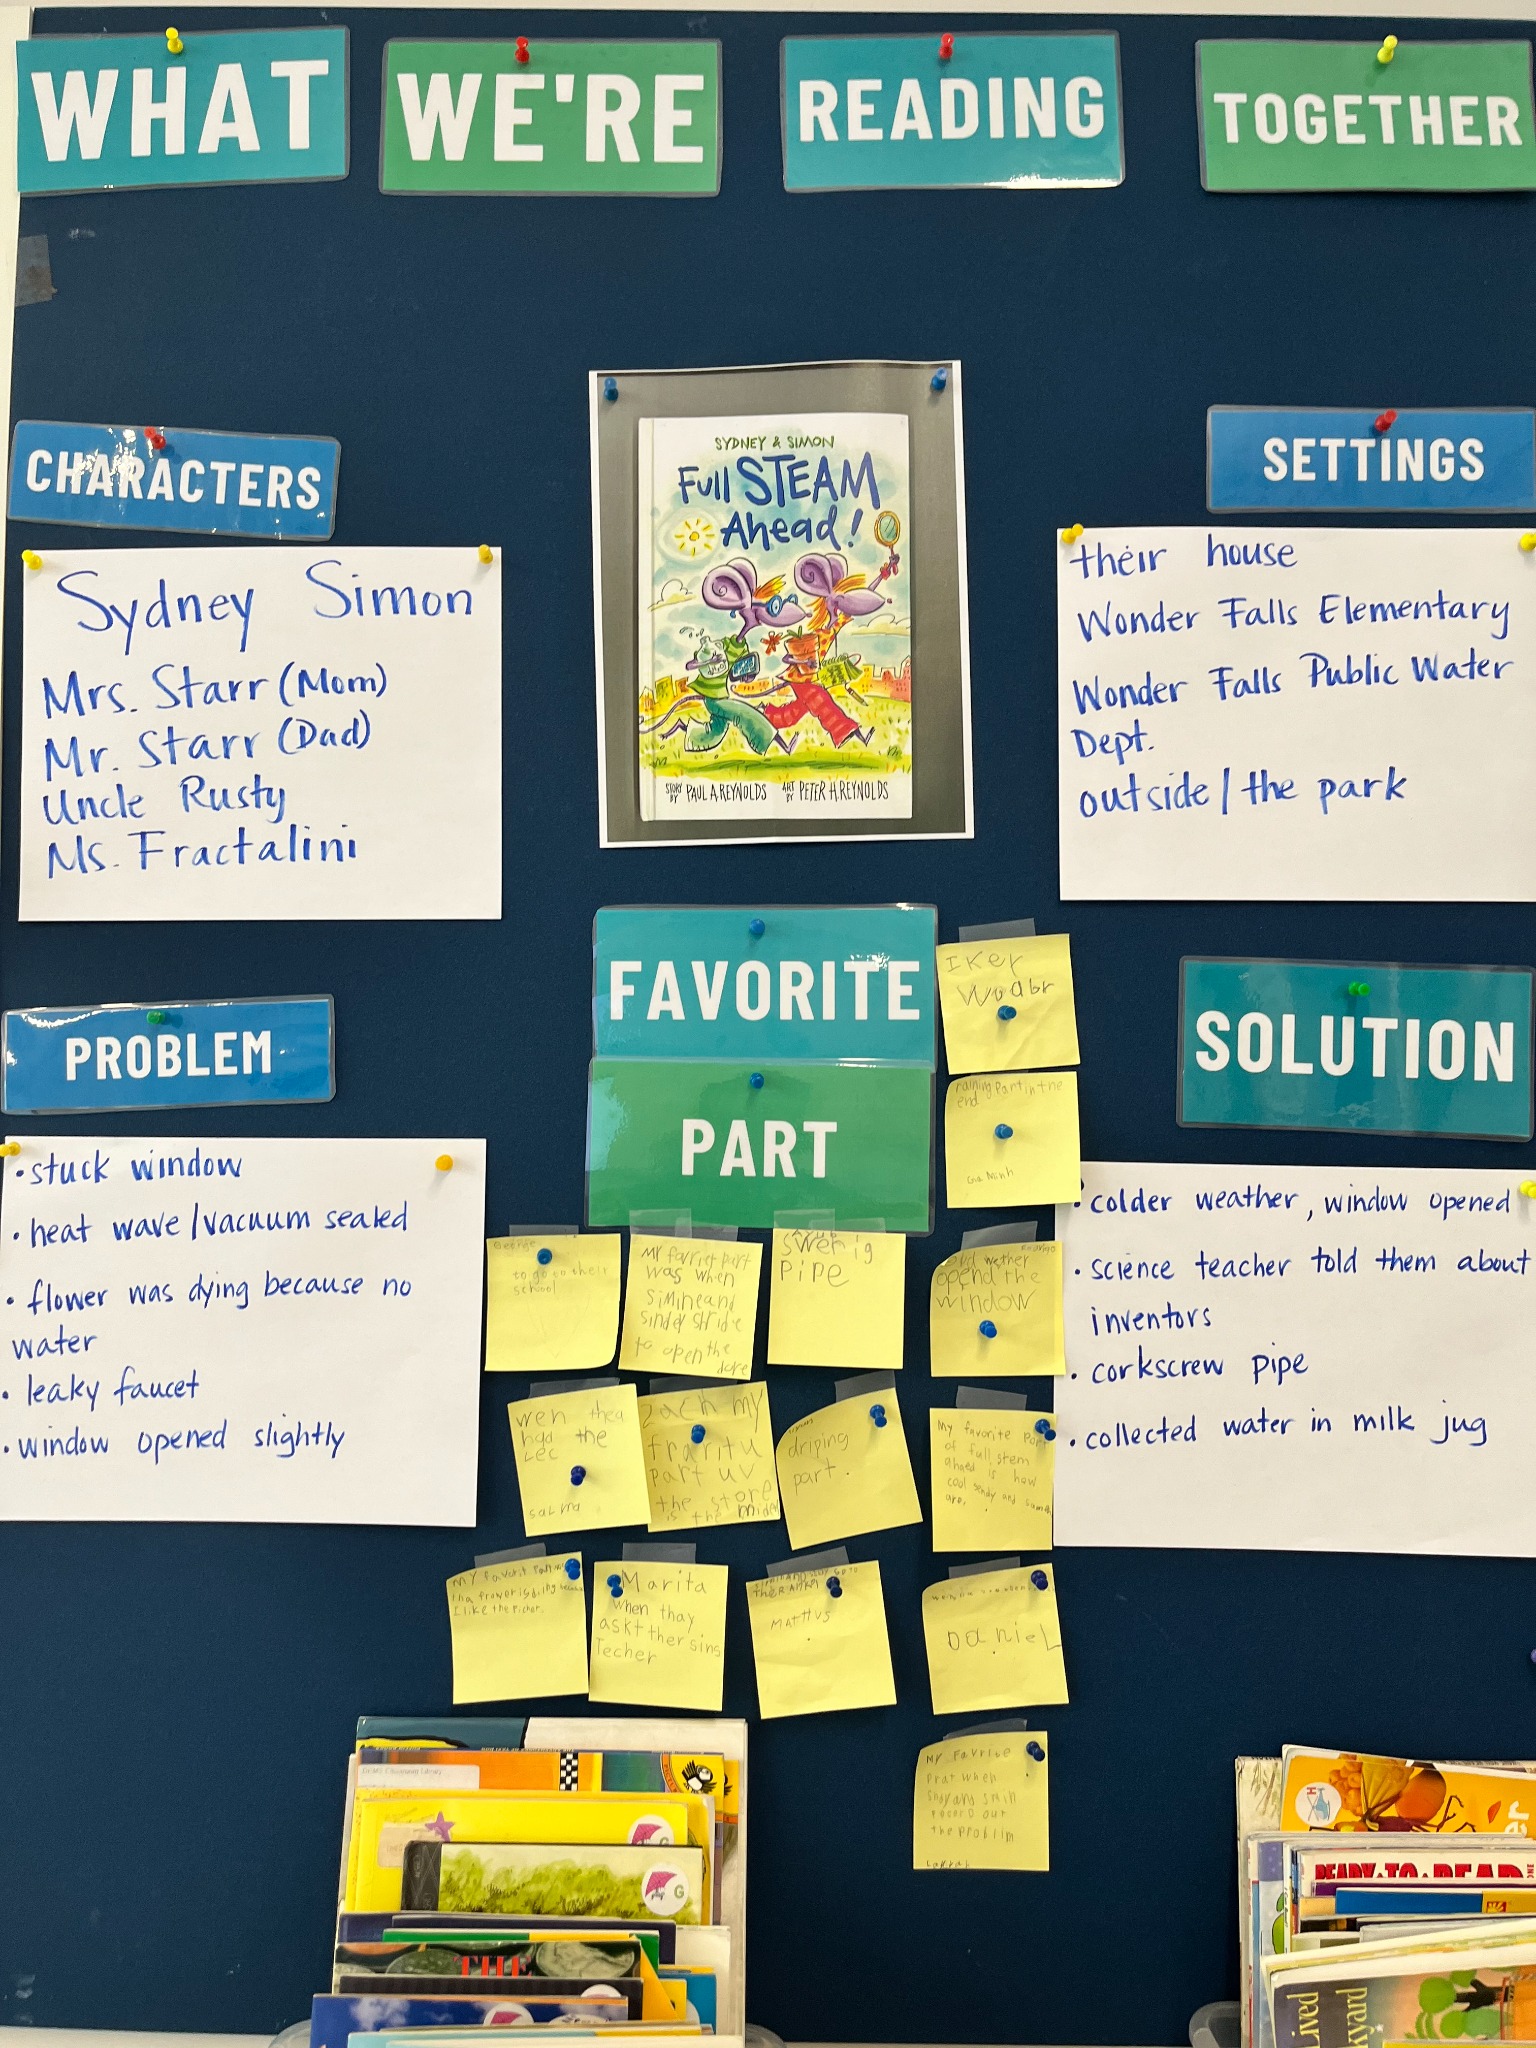 WHAT WE'RE READING TOGETHER
CHARACTERS
Sydney Simon
Mrs. Starr (Mom)
Mr. Starr (Dad)
Uncle Rusty
Ms. Fractalini
SYDNEY & SIMON
Full STEAM
Ahead!
STORY BY PAUL A. REYNOLDS ART BY PETER H. REYNOLDS
SETTINGS
their house
Wonder Falls Elementary
Wonder Falls Public Water
Dept.
outside/the park
PROBLEM
• stuck window
• heat wave/vacuum sealed
• flower was dying because no
water
• leaky faucet
• window opened slightly
FAVORITE
PART
SOLUTION
• colder weather, window opened
• science teacher told them about
inventors
• corkscrew pipe
• collected water in milk jug
Iker
raining part in the
end
Gia Minh
George
to go to their
school
My favriet part
was when
to open the
pipe
opend the
window
wen thea
had the
Salma
zach my
part uv
the store
is the midel
driping
part.
My favorite
of full stem
ahaed is how
cool
and
are.
My favorit
I like the
Marita
when thay
askt ther sins
Techer
Mattius
Daniel
My Favrite
Prat when
out
the problim
READY-TO-READ
THE
Lived
G
G
H